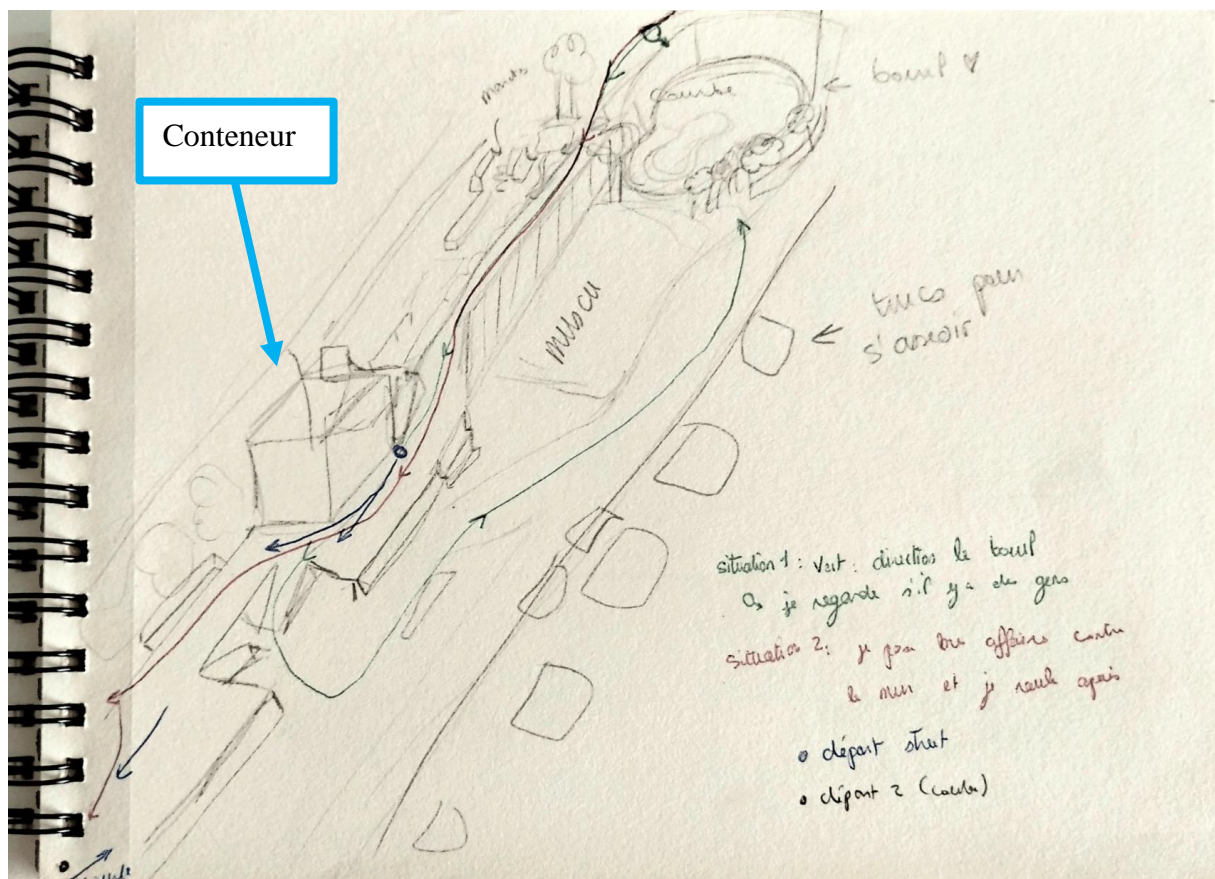 Conteneur
bowl ♥
courbe
muscu
trucs pour
s'asseoir
situation 1 : Vert : direction le bowl
↳ je regarde s'il y a des gens
situation 2 : je pose mes affaires contre
le mur et je roule après
départ street
départ 2 (courbe)